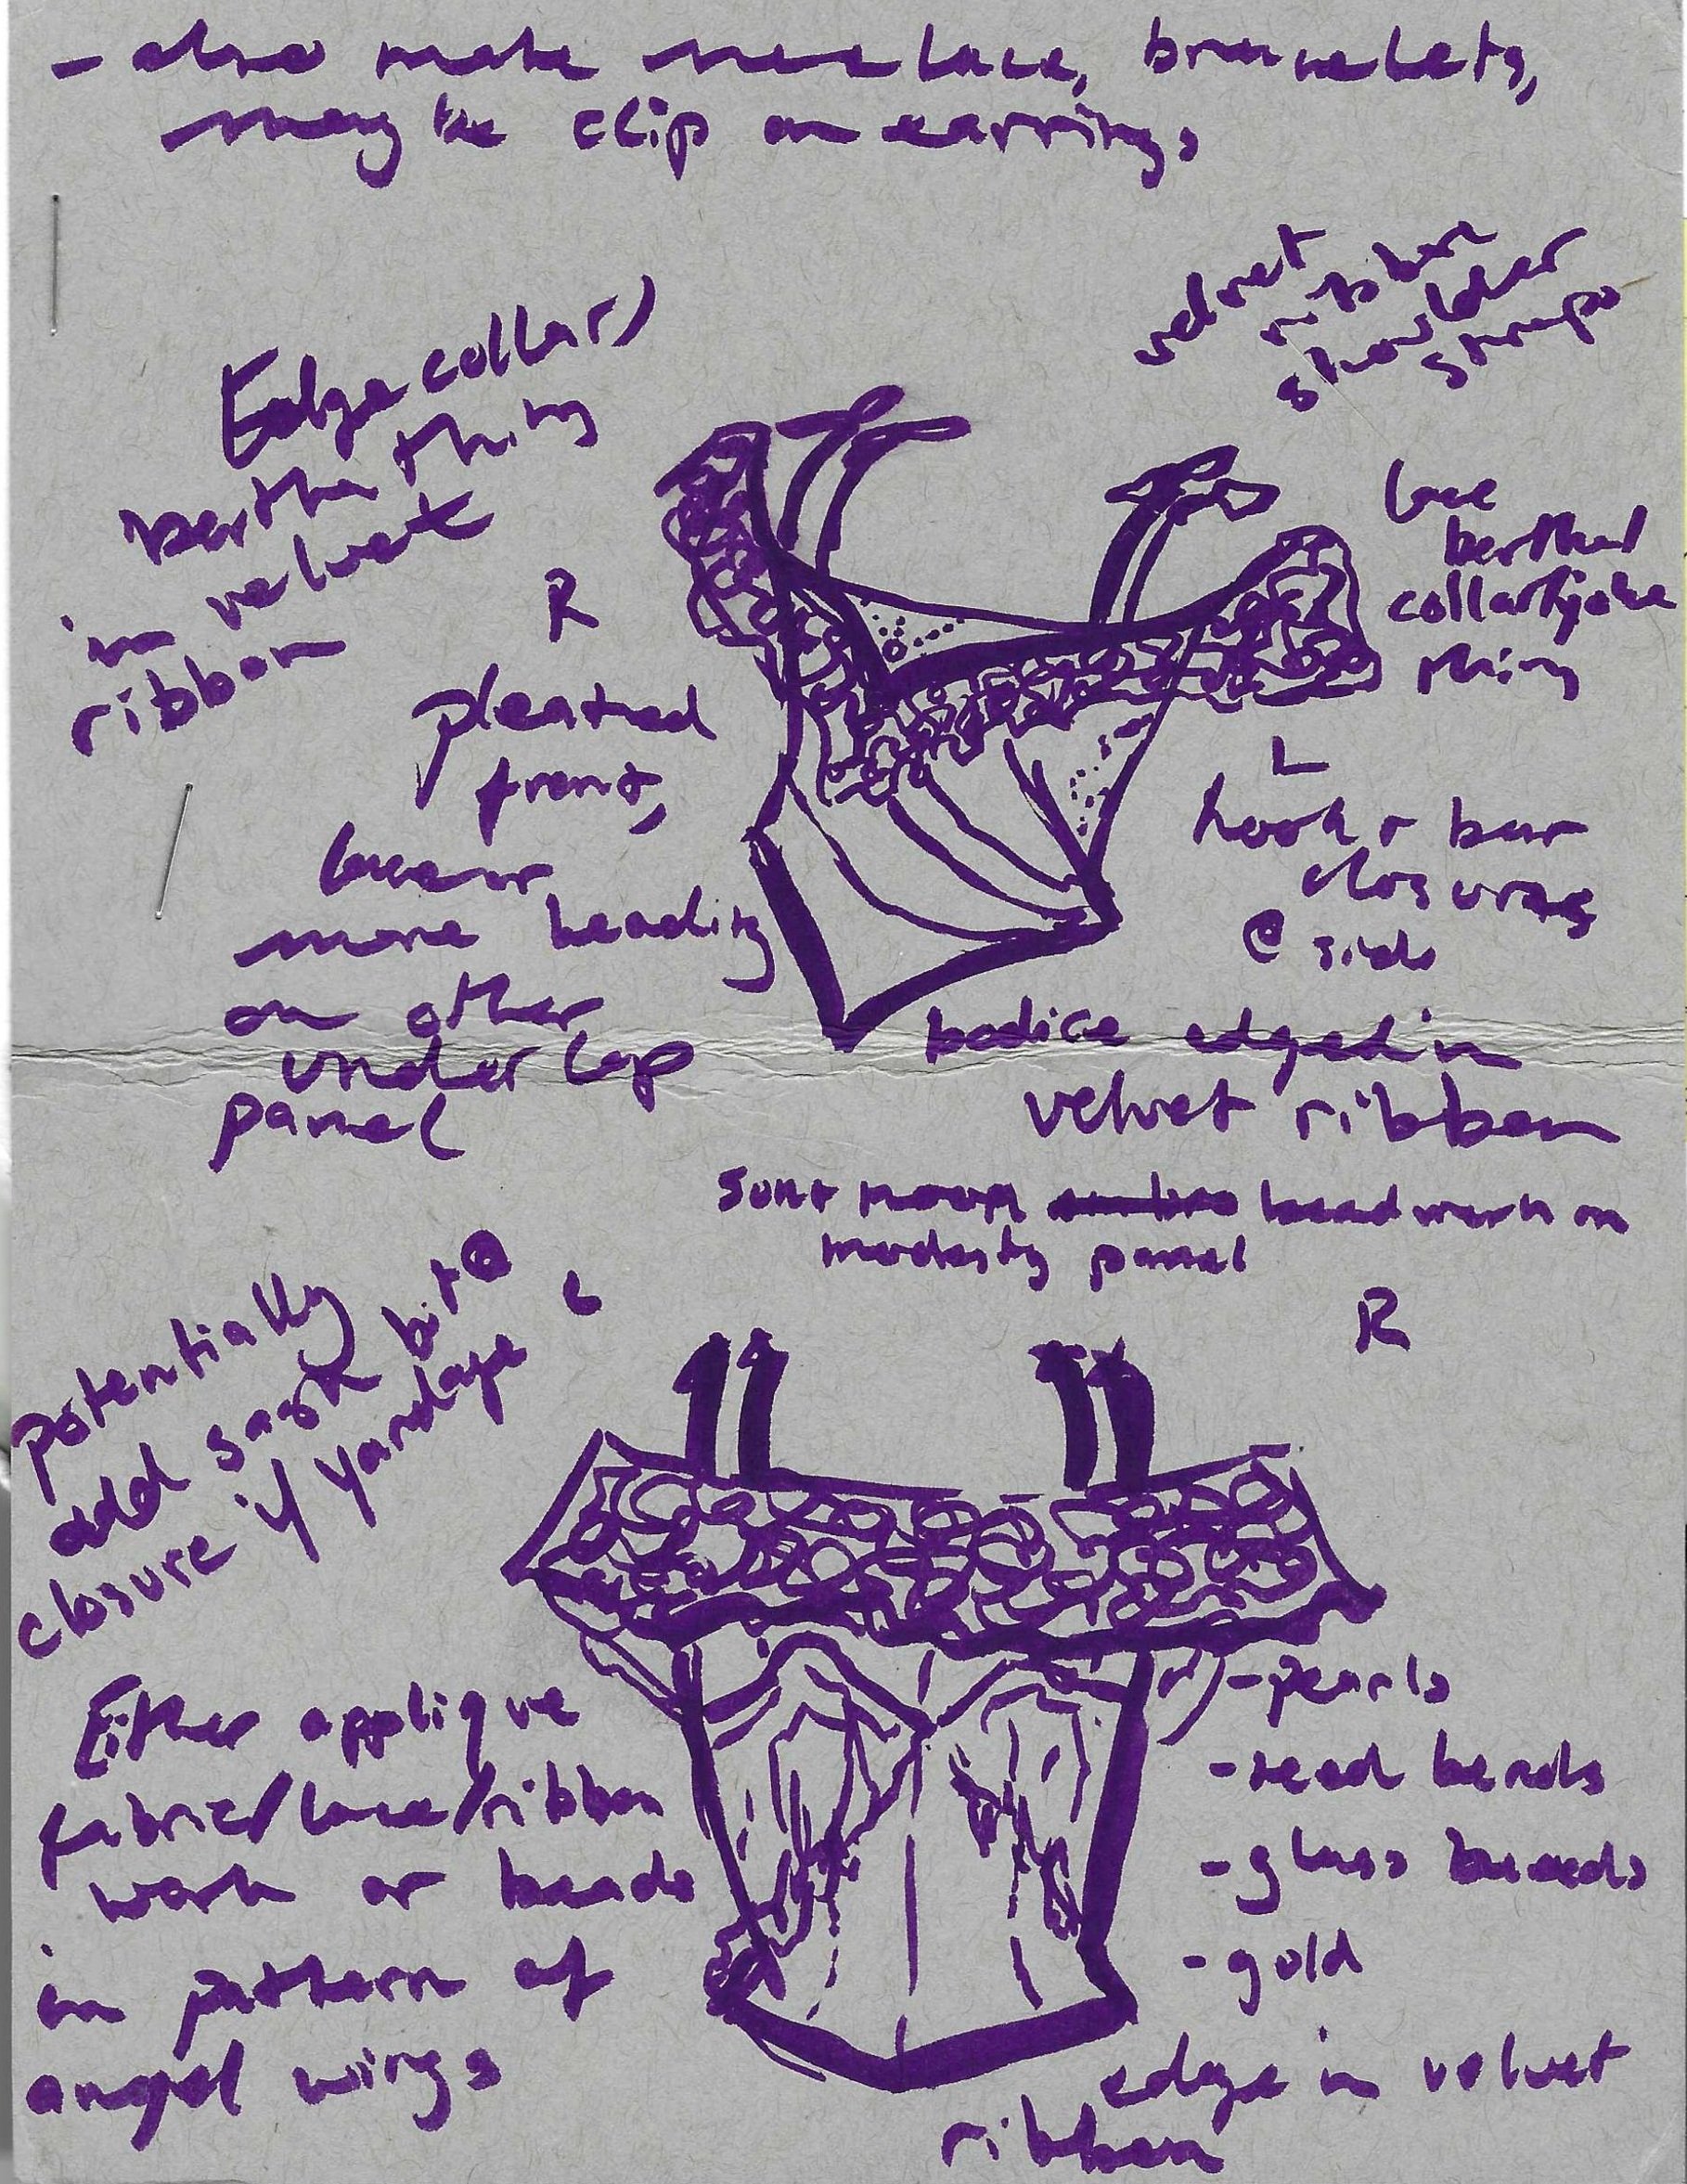 - also make necklace, bracelets,
maybe clip on earrings
velvet
ribbon
shoulder
straps
Edge collar/
bertha thing
in velvet
ribbon
lace
bertha/
collar/yoke
thing
R
pleated
front,
lace or
more beading
on other
underlap
panel
L
hook + bar
closures
@ side
bodice edged in
velvet ribbon
beadwork on
modesty panel
potentially
add sash bit @
closure if yardage
L
R
Either applique
fabric/lace/ribbon
work or beads
in pattern of
angel wings
- pearls
- seed beads
- glass beads
- gold
edge in velvet
ribbon